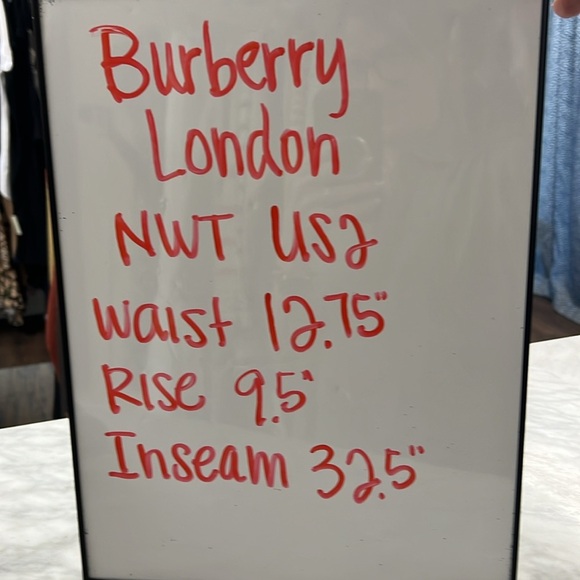 Burberry
London
NWT US2
Waist 12.75"
Rise 9.5"
Inseam 32.5"